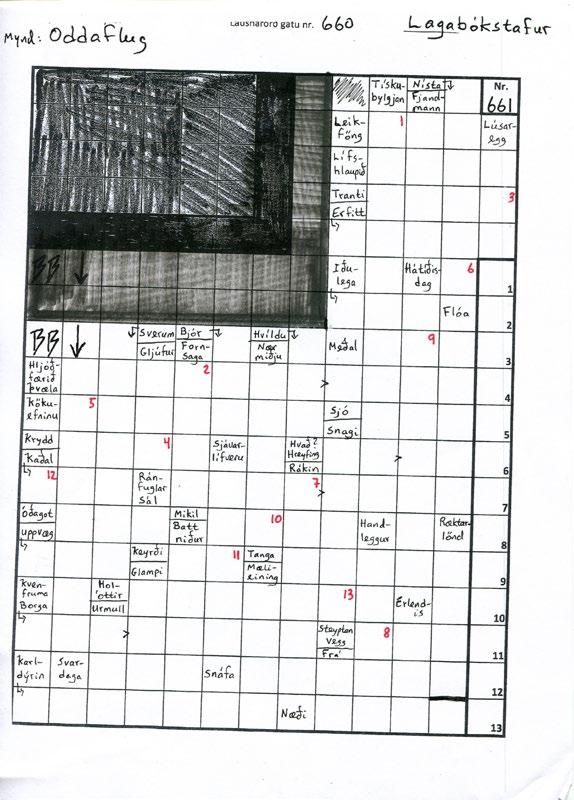 Lausnarorð gátu nr. 660
Lagabókstafur
Mynd: Oddaflug
Tísku-
bylgjan
Nísta
Fjand-
mann
Nr.
661
Leik-
föng
1
Lúsar-
egg
Lífs-
hlaupið
Tranti
Erfitt
3
BB
Iðu-
lega
Hátíðis-
dag
6
1
Flóa
2
BB
Sverum
Gljúfur
Bjór
Forn-
saga
Hvíldu
Nær
miðju
Meðal
9
3
Hljóð-
færið
Þvæla
2
>
4
Köku-
efninu
5
Sjó
Snagi
5
Krydd
Kaðal
4
Sjávar-
lífveru
Hvað?
Hreyfing
Rákin
>
6
12
Rán-
fuglar
Sál
7
>
7
Óðagot
uppvæg
Mikil
Batt
niður
10
Hand-
leggur
Ræktar-
lönd
8
Keyrði
Glampi
11
Tanga
Mæli-
eining
9
Kven-
fruma
Borga
Hol-
óttir
Urmull
13
Erlend-
is
10
>
Steyptan
vegg
Frá
8
11
Karl-
dýrin
Svar-
daga
Snáfa
12
Næði
13